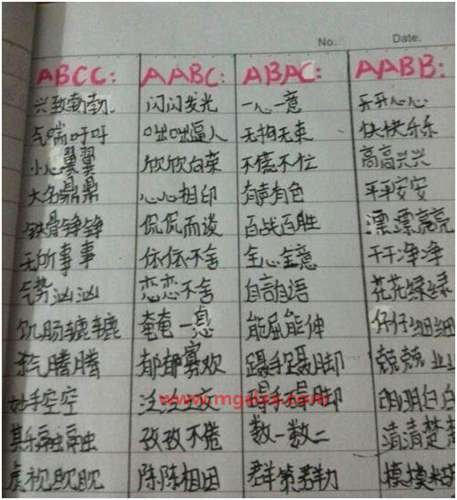 No. Date.
ABCC: AABC: ABAC: AABB:
兴致勃勃 闪闪发光 一心一意 开开心心
气喘吁吁 咄咄逼人 无拘无束 快快乐乐
小心翼翼 欣欣向荣 不慌不忙 高高兴兴
大名鼎鼎 心心相印 有声有色 平平安安
铁骨铮铮 侃侃而谈 百战百胜 漂漂亮亮
无所事事 依依不舍 全心全意 干干净净
气势汹汹 恋恋不舍 自言自语 花花绿绿
饥肠辘辘 奄奄一息 能屈能伸 仔仔细细
杀气腾腾 郁郁寡欢 蹑手蹑脚 兢兢业业
妙手空空 泛泛之交 碍手碍脚 明明白白
其乐融融 孜孜不倦 数一数二 清清楚楚
虎视眈眈 陈陈相因 群策群力 模模